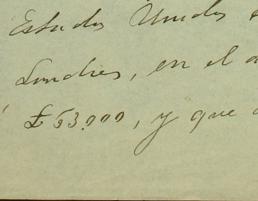 Estados Unidos
Londres, en el
£53.000, y que